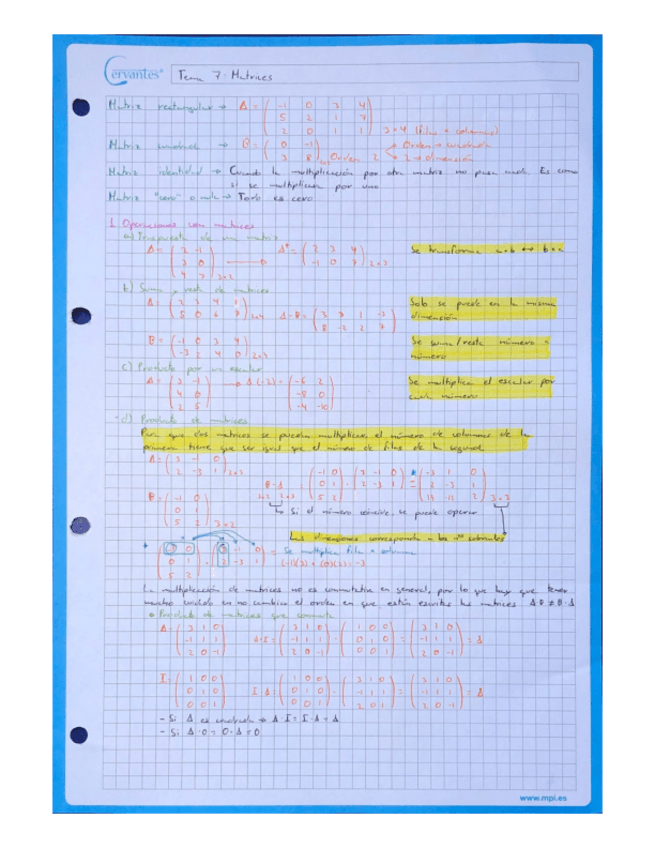 Cervantes Tema 7: Matrices
Matriz rectangular → A = ( -1 0 3 4
5 2 1 7
2 0 1 1 ) 3×4 (filas × columnas)
Matriz cuadrada → B = ( 0 -1
3 8 ) Orden 2
Orden → cuadrada
2 → dimensión
Matriz identidad → Cuando la multiplicación por otra matriz no pasa nada. Es como
si se multiplicase por uno
Matriz "cero" o nula → Todo es cero
1. Operaciones con matrices
a) Traspuesta de una matriz
A = ( 2 -1
3 0
4 7 ) 3×2
( 2 3 4
-1 0 7 ) 2×3
Se transforma a×b ↔ b×a
b) Suma y resta de matrices
A = ( 2 3 4 1
5 0 6 7 ) 2×4
A-B = ( 3 3 1 -3
8 -2 2 7 )
Solo se puede en la misma
dimensión
B = ( -1 0 3 4
-3 2 4 0 ) 2×4
Se suma/resta número a
número
c) Producto por un escalar
A = ( 3 -1
4 0
2 5 )
→ A·(-2) = ( -6 2
-8 0
-4 -10 )
Se multiplica el escalar por
cada número
d) Producto de matrices
Para que dos matrices se puedan multiplicar el número de columnas de la
primera tiene que ser igual que el número de filas de la segunda
A = ( 3 -1 0
2 -3 1 ) 2×3
B = ( -1 0
0 1
5 2 ) 3×2
B·A = ( -1 0
0 1
5 2 ) · ( 3 -1 0
2 -3 1 ) = ( -3 1 0
2 -3 1
19 -11 2 ) 3×3
3×2 2×3
Si el número coincide, se puede operar
Las dimensiones corresponden a los nº sobrantes
= Se multiplica fila × columna
(-1)(3) + (0)(2) = -3
La multiplicación de matrices no es conmutativa en general, por lo que hay que tener
mucho cuidado en no cambiar el orden en que están escritas las matrices A·B ≠ B·A
Producto de matrices que conmuta
A = ( 3 1 0
-1 1 1
2 0 -1 )
A·I = ( 3 1 0
-1 1 1
2 0 -1 ) · ( 1 0 0
0 1 0
0 0 1 ) = ( 3 1 0
-1 1 1
2 0 -1 ) = A
I = ( 1 0 0
0 1 0
0 0 1 )
I·A = ( 1 0 0
0 1 0
0 0 1 ) · ( 3 1 0
-1 1 1
2 0 1 ) = ( 3 1 0
-1 1 1
2 0 -1 ) = A
- Si A es cuadrada → A·I = I·A = A
- Si A·0 = 0·A = 0
www.mpi.es